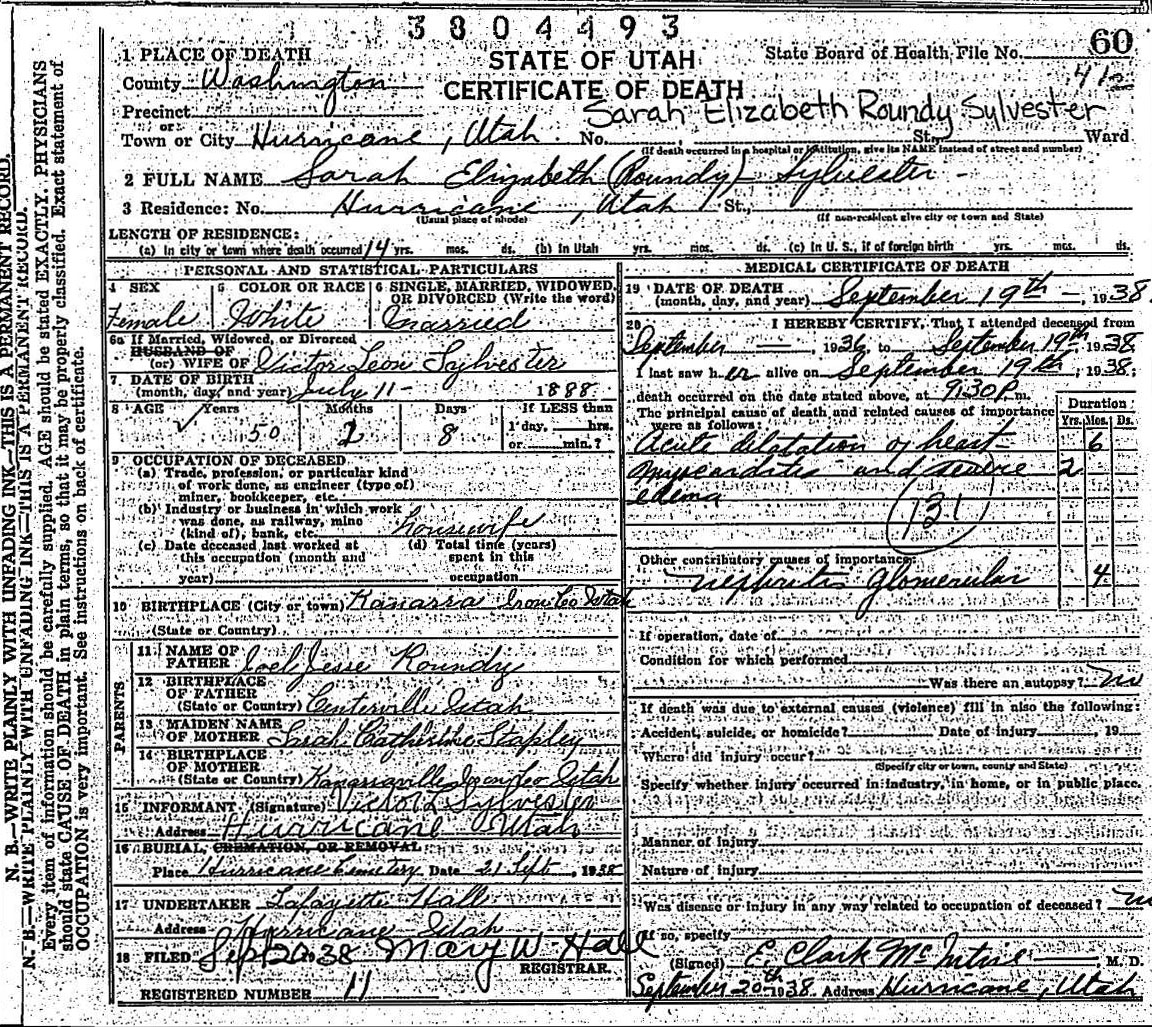 3804493
STATE OF UTAH
CERTIFICATE OF DEATH
State Board of Health File No. 60
41
Sarah Elizabeth Roundy Sylvester
1 PLACE OF DEATH
County Washington
Precinct
or
Town or City Hurricane, Utah No. St., Ward
(If death occurred in a hospital or institution, give its NAME instead of street and number)
2 FULL NAME Sarah Elizabeth (Roundy) Sylvester
3 Residence: No. Hurricane, Utah St.,
(Usual place of abode) (If non-resident give city or town and State)
LENGTH OF RESIDENCE:
(a) In city or town where death occurred 14 yrs. mos. ds. (b) In Utah yrs. mos. ds. (c) In U. S., if of foreign birth yrs. mos. ds.
PERSONAL AND STATISTICAL PARTICULARS
4 SEX Female
5 COLOR OR RACE White
6 SINGLE, MARRIED, WIDOWED, OR DIVORCED (Write the word) Married
6a If Married, Widowed, or Divorced
HUSBAND OF
(or) WIFE OF Victor Leon Sylvester
7 DATE OF BIRTH
(month, day, and year) July 11 - 1888
8 AGE Years Months Days If LESS than
1 day, hrs.
50 2 8 or min.?
9 OCCUPATION OF DECEASED
(a) Trade, profession, or particular kind
of work done, as engineer (type of)
miner, bookkeeper, etc.
(b) Industry or business in which work
was done, as railway, mine
(kind of), bank, etc. housewife
(c) Date deceased last worked at
this occupation (month and
year)
(d) Total time (years)
spent in this
occupation
10 BIRTHPLACE (City or town) Kanarra Iron Co Utah
(State or Country)
PARENTS
11 NAME OF
FATHER Joel Jesse Roundy
12 BIRTHPLACE
OF FATHER
(State or Country) Centerville Utah
13 MAIDEN NAME
OF MOTHER Sarah Catherine Stapley
14 BIRTHPLACE
OF MOTHER
(State or Country) Kanarraville Iron Co Utah
15 INFORMANT (Signature) Victor L Sylvester
Address Hurricane Utah
16 BURIAL, CREMATION, OR REMOVAL
Place Hurricane Cemetery Date 21 Sept, 1938
17 UNDERTAKER Lafayette Hall
Address Hurricane Utah
18 FILED Sept 20 1938 Mary W. Hall
REGISTRAR.
REGISTERED NUMBER 11
MEDICAL CERTIFICATE OF DEATH
19 DATE OF DEATH
(month, day, and year) September 19th - , 1938.
20 I HEREBY CERTIFY, That I attended deceased from
September — , 1936, to September 19th 1938
I last saw her alive on September 19th, 1938;
death occurred on the date stated above, at 9:30 P m.
The principal cause of death and related causes of importance
were as follows:
Duration
Yrs. Mos. Ds.
Acute dilatation of heart 6
myocarditis and severe 2
edema
131
Other contributory causes of importance:
Nephritis glomerular 4
If operation, date of
Condition for which performed
Was there an autopsy? no
If death was due to external causes (violence) fill in also the following:
Accident, suicide, or homicide? Date of injury , 19
Where did injury occur?
(Specify city or town, county and State)
Specify whether injury occurred in industry, in home, or in public place.
Manner of injury
Nature of injury
Was disease or injury in any way related to occupation of deceased? no
If so, specify
(Signed) E. Clark McIntire M. D.
September 20th 1938. Address Hurricane, Utah
N. B.—WRITE PLAINLY WITH UNFADING INK—THIS IS A PERMANENT RECORD.
N. B.—WRITE PLAINLY WITH UNFADING INK—THIS IS A PERMANENT RECORD.
Every item of information should be carefully supplied. AGE should be stated EXACTLY. PHYSICIANS
should state CAUSE OF DEATH in plain terms, so that it may be properly classified. Exact statement of
OCCUPATION is very important. See instructions on back of certificate.